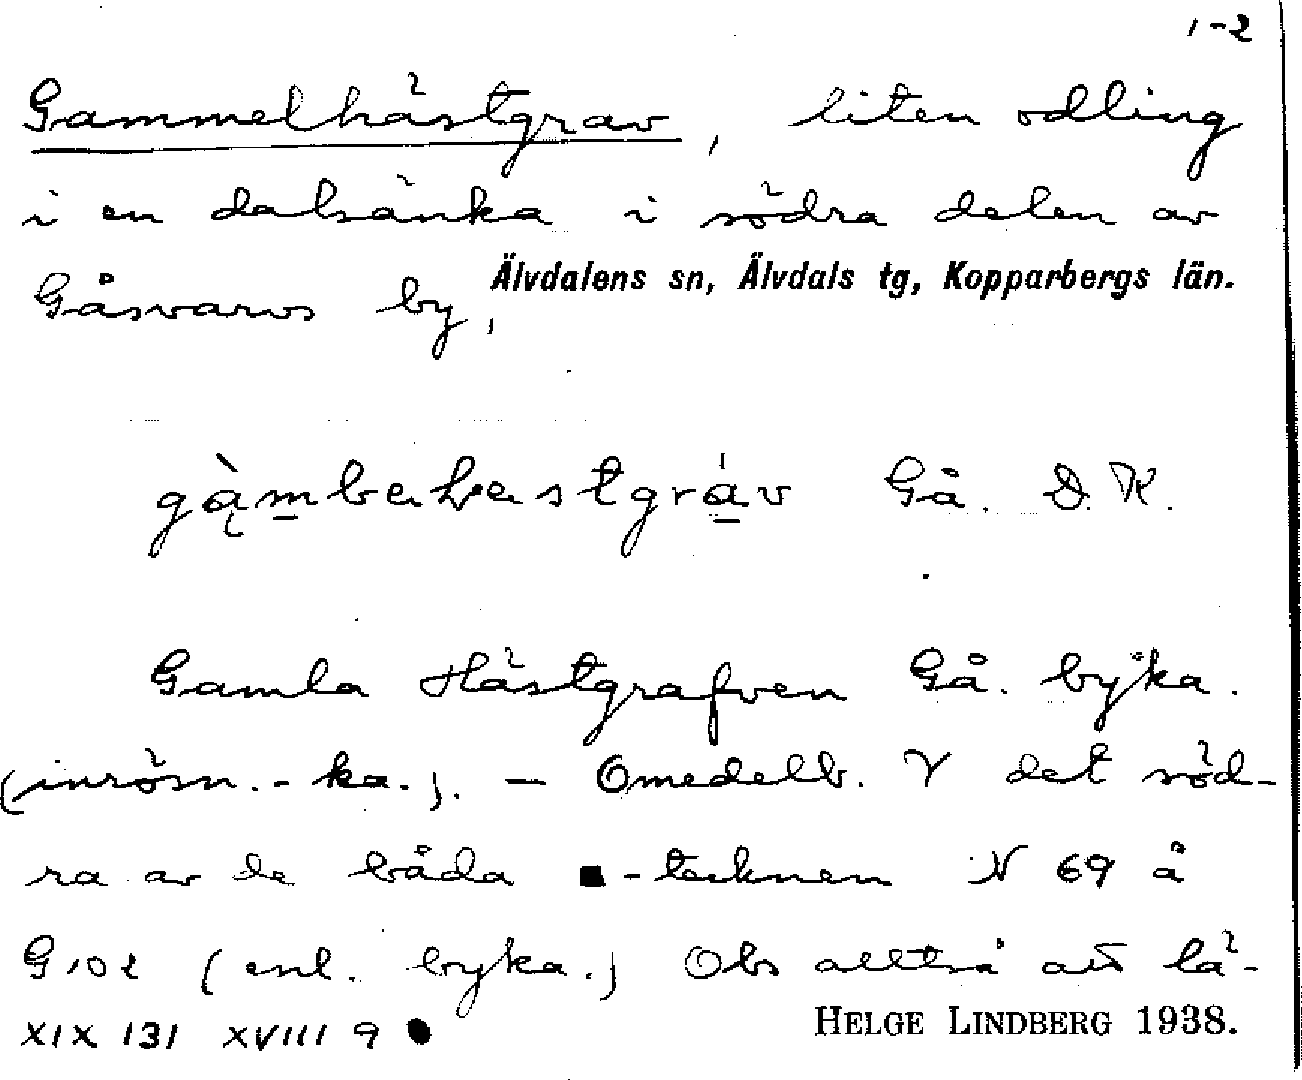 1-2
Gammelhästgrav, liten odling
i en dalsänka i södra delen av
Gåsvarvs by, Älvdalens sn, Älvdals tg, Kopparbergs län.
Gå. D. K.
Gamla Hästgrafven Gå. byka.
(inrösn.-ka.). - Omedelb. V det söd-
ra av de båda ■-tecknen N 69 å
G102 (enl. byka.) Obs alltså att lä-
XIX 131 XVIII 9 ●
HELGE LINDBERG 1938.